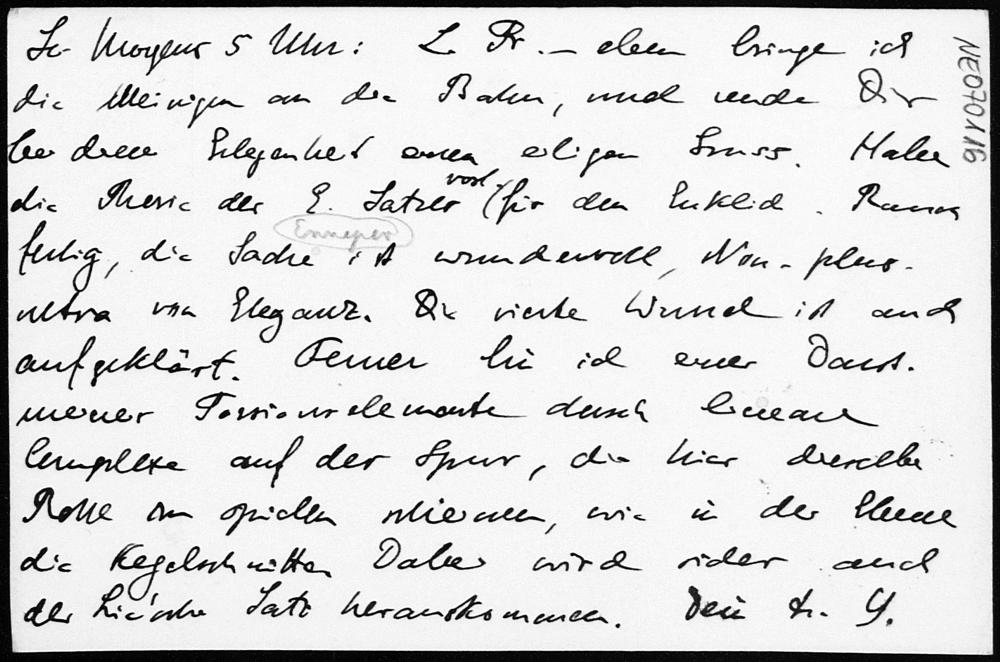 So Morgens 5 Uhr: L. Pr. — eben bringe ich
die Meinigen an die Bahn, und sende Dir
bei dieser Gelegenheit einen eiligen Gruss. Habe
die Theorie des E. Satzes vorl. (für den Euklid. Raum
Enneper
fertig, die Sache ist wundervoll, Non-plus-
ultra von Eleganz. Die vierte Wund ist auch
aufgeklärt. Ferner bin ich einer Darst.
meiner Torsionselemente durch lineare
Complexe auf der Spur, die hier dieselbe
Rolle zu spielen scheinen, wie in der Ebene
die Kegelschnitte. Dabei wird sicher auch
der Lie'sche Satz herauskommen. Dein tr.
NEO70116